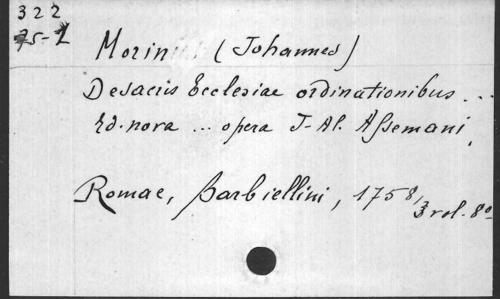 322
75-2
Morinus (Johannes)
De sacris Ecclesiae ordinationibus ...
Ed. nova ... opera J-Al. Assemani,
Romae, Barbiellini, 1758,
3 vol. 8°